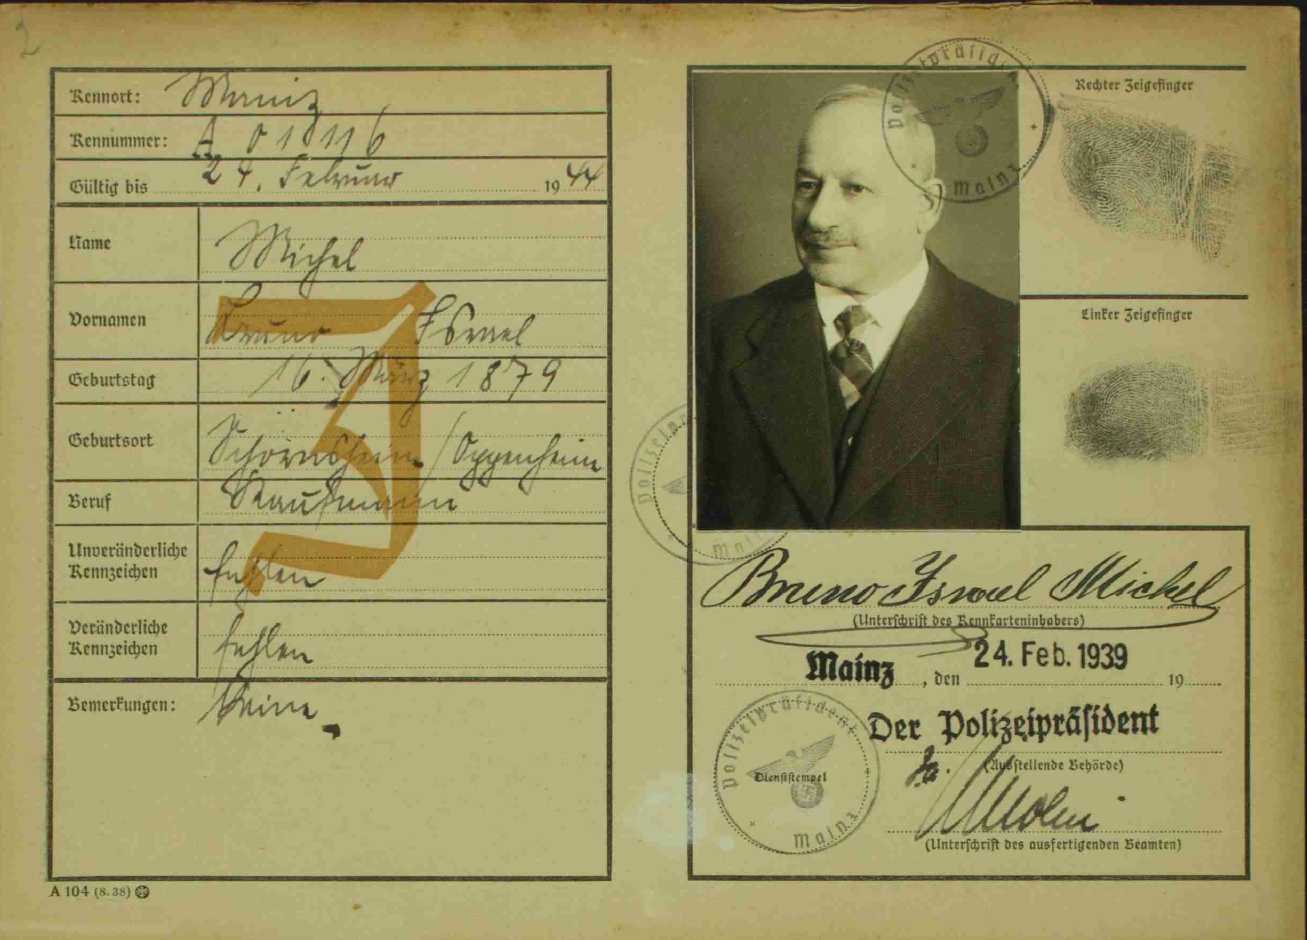 2
Kennort: Mainz
Kennummer: A 01116
Gültig bis 24. Februar 1944
Name Michel
Vornamen Bruno Israel
Geburtstag 16. März 1879
Geburtsort Schornsheim / Oppenheim
Beruf Kaufmann
Unveränderliche
Kennzeichen fehlen
Veränderliche
Kennzeichen fehlen
Bemerkungen: Keine
J
A 104 (8. 38)
Polizeipräsident
Mainz
Rechter Zeigefinger
Linker Zeigefinger
Polizeipräsident
Mainz
Bruno Israel Michel
(Unterschrift des Kennkarteninhabers)
Mainz, den 24. Feb. 1939 19
Der Polizeipräsident
(Ausstellende Behörde)
(Unterschrift des ausfertigenden Beamten)
Polizeipräsident
Dienststempel
Mainz